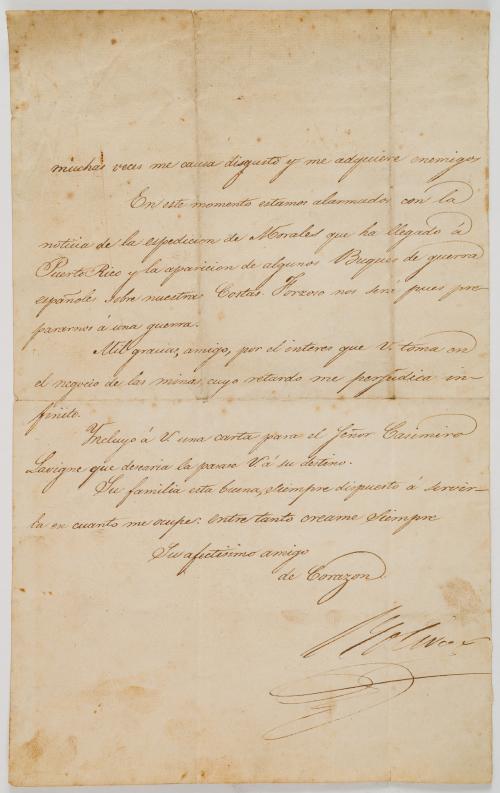 muchas veces me causa disgusto y me adquiere enemigos
En este momento estamos alarmados con la
noticia de la espedicion de Morales que ha llegado á
Puerto Rico y la aparicion de algunos Buques de guerra
españoles sobre nuestras Costas. Forzoso nos será pues pre-
pararnos á una guerra.
Mil gracias, amigo, por el interes que V. toma en
el negocio de las minas, cuyo retardo me perjudica in-
finito.
Yncluyo á V. una carta para el Señor Casimiro
Lavigne que desearia la pasase V. á su destino.
Su familia esta buena, siempre dispuesto á servir-
la en cuanto me ocupe: entre tanto creame siempre
Su afectisimo amigo
de Corazon
Bolivar